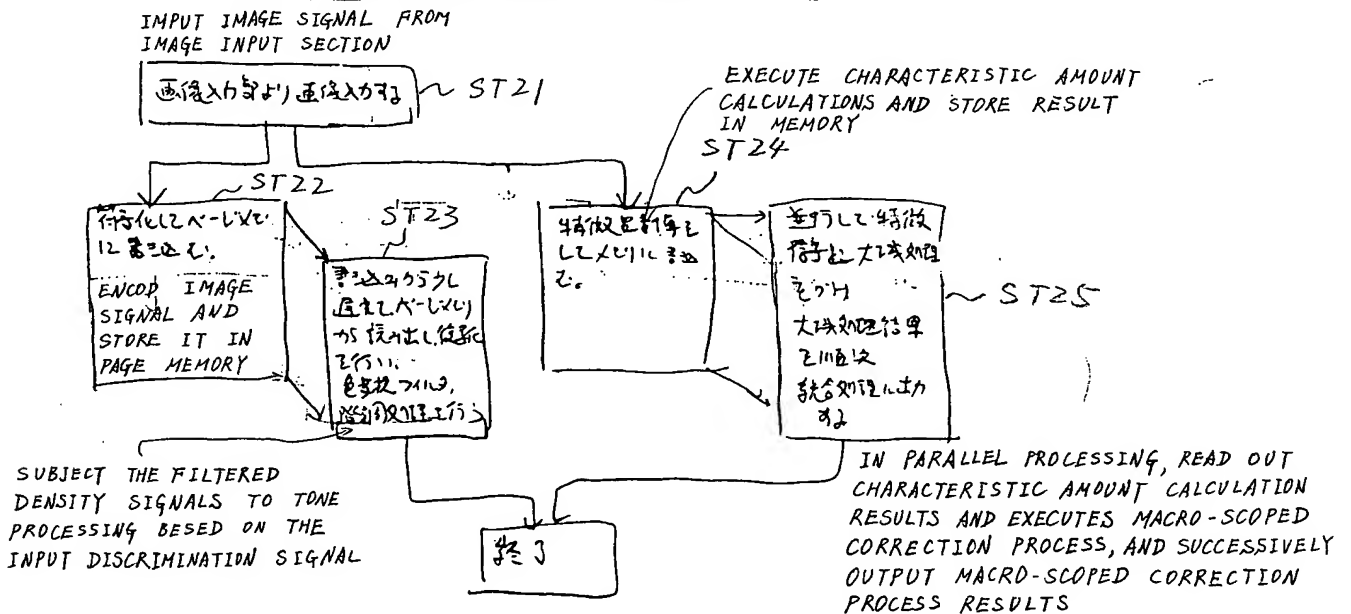 IMPUT IMAGE SIGNAL FROM
IMAGE INPUT SECTION
画像入力部より画像入力する
ST21
EXECUTE CHARACTERISTIC AMOUNT
CALCULATIONS AND STORE RESULT
IN MEMORY
ST24
ST22
符号化してページメモリ
に書き込む。
ENCOD IMAGE
SIGNAL AND
STORE IT IN
PAGE MEMORY
ST23
書き込みから少し
遅れてページメモリ
から読み出し、復号化
を行い、
色変換フィルタ、
階調処理を行う
特徴量計算を
してメモリに書込
む。
並行して特徴
大域処理
大域処理結果
を順次
統合処理に出力
する
ST25
SUBJECT THE FILTERED
DENSITY SIGNALS TO TONE
PROCESSING BESED ON THE
INPUT DISCRIMINATION SIGNAL
終了
IN PARALLEL PROCESSING, READ OUT
CHARACTERISTIC AMOUNT CALCULATION
RESULTS AND EXECUTES MACRO-SCOPED
CORRECTION PROCESS, AND SUCCESSIVELY
OUTPUT MACRO-SCOPED CORRECTION
PROCESS RESULTS